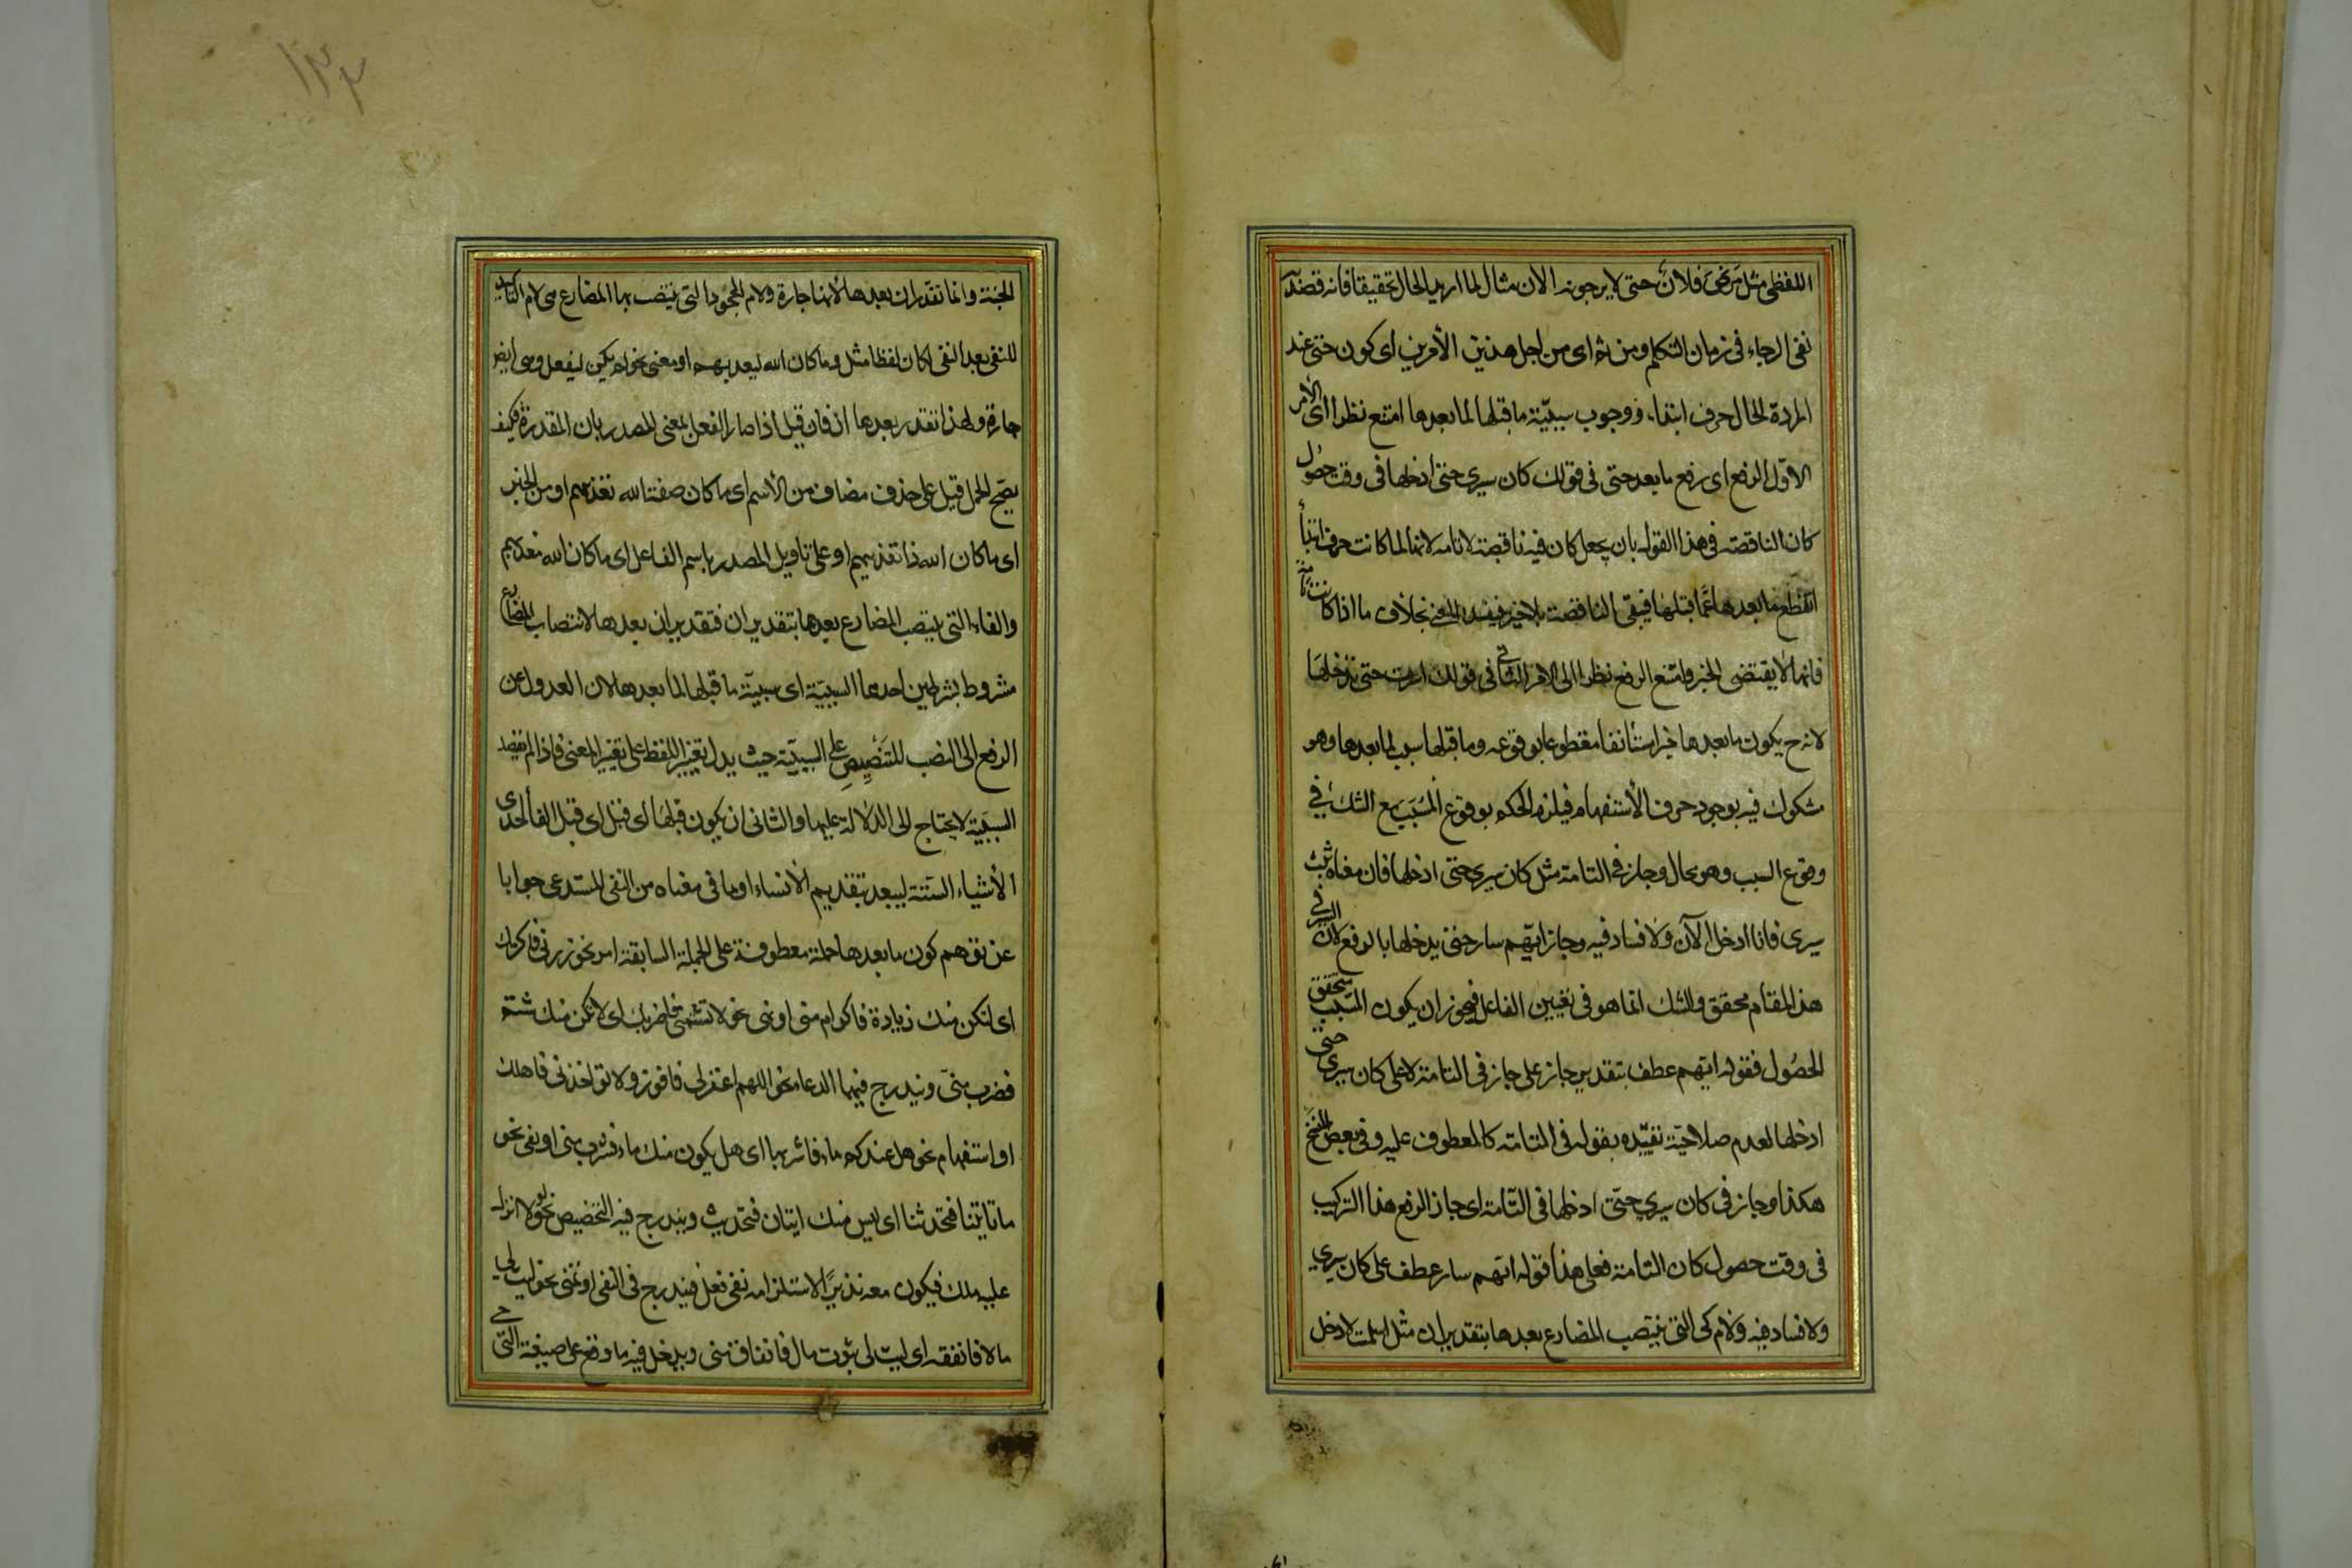 اللفظي مثل مرض فلان حتى لا يرجونه الآن مثال لما اريد الحال تحقيقا فانه قصد به
نفى الرجاء فى زمان التكلم ومن ثم اى من اجل هذين الأمرين اى كون حتى عند
ارادة الحال حرف ابتداء ووجوب سببيّة ما قبلها لما بعدها امتنع نظرا الى الأمر
الاوّل الرفع اى رفع ما بعد حتى فى قولك كان سيرى حتى ادخلها فى وقت حصول
كان الناقصة فى هذا القول بان يجعل كان فيه ناقصة لا تامه لانها لما كانت حرف ابتدأ
انقطع ما بعدها عمّا قبلها فيبقى الناقصة بلا خبر فيفسد المعنى بخلاف ما اذا كانت تامة
فانها لا يقتضى الخبر وامتنع الرفع نظرا الى الامر الثانى فى قولك اسرت حتى تدخلها
لانه ح يكون ما بعدها خبرا مستأنفا مقطوعا بوقوعه وما قبلها سبب لما بعدها وهو
مشكوك فيه بوجود حرف الأستفهام فيلزم الحكم بوقوع المسبب مع الشك فى
وقوع السبب وهو محال وجاز فى التامة مثل كان سيرى حتى ادخلها فان معناه ثبت
سيرى فانا ادخل الآن ولا فساد فيه وجاز ايهم سار حتى يدخلها بالرفع لان السير فى
هذا المقام محقق والشك انما هو فى تعيين الفاعل فيجوز ان يكون المسبب متحقق
الحصول فقوله ايهم عطف بتقدير جاز على جاز فى التامة لا على كان سيرى حتى
ادخلها لعدم صلاحيّة تقييده بقوله فى التامّه كالمعطوف عليه وفى بعض النسخ
هكذا وجاز فى كان سيرى حتّى ادخلها فى التّامة اى جاز الرفع هذا التركيب
فى وقت حصول كان التامة فعلى هذا قوله ايّهم سار عطف على كان سيرى
ولا فساد فيه ولام كى التى ينتصب المضارع بعدها بتقدير ان مثل اسلمت لادخل
١٣٣
الجنة وانما تقدر ان بعدها لأنها جارة ولام الجحود التى ينتصب بها المضارع هى لام التاكيد
للنفى بعد النفى لكان لفظا مثل وما كان الله ليعذبهم او معنى نحو لم يكن ليفعل وهى ايضا
جارة ولهذا تقدر بعدها ان فان قيل اذا صار الفعل بمعنى المصدر بان المقدرة فكيف
يصّح الحمل قيل على حذف مضاف من الأسم اى ما كان صفة الله تعذيبهم او من الخبر
اى ما كان الله ذا تعذيبهم او على تاويل المصدر باسم الفاعل اى ما كان الله معذبهم
والفاء التى ينتصب المضارع بعدها بتقدير ان فتقدير ان بعدها لانتصاب المضارع
مشروط بشرطين احدها السببيّة اى سببيّة ما قبلها لما بعدها لان العدول عن
الرفع الى النصب للتّنصيص على السببيّة حيث يدل تغيير اللفظ على تغيير المعنى فاذا لم يقصد
السببيّة لا يحتاج الى الدلالة عليها والثانى ان يكون قبلها اى قبل اى قبل الفأ احدى
الأشياء الستة ليبعد بتقديم الأنشاء او ما فى معناه من النفى المستدعى جوابا
عن توهم كون ما بعدها جملة معطوفة على الجملة السابقة امر نحو زرنى فاكرمك
اى لتكن منك زيادة فاكرام منى او نهى نحو لا تشتمنى فاضربك اى لا يكن منك شتم
فضرب منىّ ويندرج فيهما الدعاء نحو اللهم اغفر لى فافوز ولا تؤاخذنى فاهلك
او استفهام نحو هل عندكم ماء فاشربها اى هل يكون منك ماء فشرب منى او نفى نحو
ما تاتينا فتحدثنا اى ليس منك ايتان فتحديث ويندرج فيه التخضيض نحو لولا انزل
عليه ملك فيكون معه نذيرًا لاستلزامه نفى فعل فيندرج فى النفى او تمنى نحو ليت لى
مالا فانفقه اى ليت لى ثبوت مال فانفاق منى ويدخل فيه ما وقع على صيغة الترجى